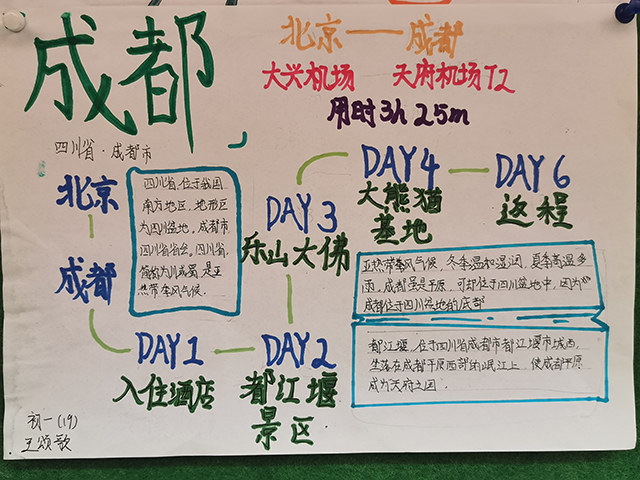 成都
北京——成都
大兴机场 天府机场T2
用时3h 25m
四川省·成都市
北京
成都
四川省,位于我国
南方地区,地形区
为四川盆地,成都市
四川省省会。四川省,
简称为川或蜀,是亚
热带季风气候.
DAY1
入住酒店
DAY2
都江堰
景区
DAY3
乐山大佛
DAY4
大熊猫
基地
DAY6
返程
亚热带季风气候,冬季温和湿润,夏季高温多
雨。成都虽是平原,可却位于四川盆地中,因为
成都位于四川盆地的底部
都江堰,位于四川省成都市都江堰市城西,
坐落在成都平原西部的岷江上,使成都平原
成为天府之国.
初一(19)
王颂歌